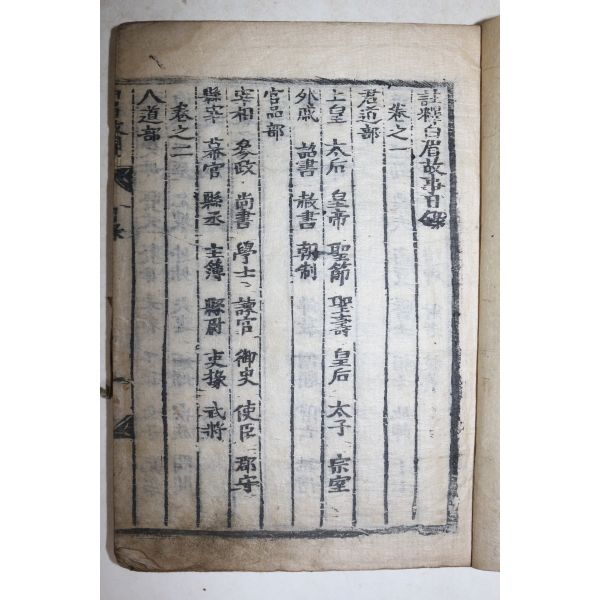 註釋白眉故事目錄
卷之一
君道部
上皇 太后 皇帝 聖節 聖壽 皇后 太子 宗室
外戚 詔書 赦書 朝制
官品部
宰相 參政 尚書 學士 諫官 御史 使臣 郡守
縣宰 幕官 縣丞 主簿 縣尉 吏掾 武將
卷之二
人道部
目錄